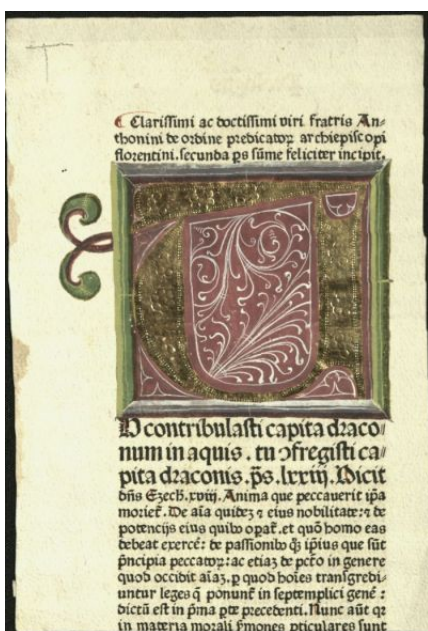 Clarissimi ac doctissimi viri fratris An-
thonini de ordine predicatoꝝ archiepiscopi
florentini. secunda ps sūme feliciter incipit.
U contribulasti capita draco
num in aquis. tu ꝯfregisti ca
pita draconis. ps. lxxiij. Dicit
dn̄s Ezech. xviij. Anima que peccauerit ip̄a
moriet. De aīa quidez ⁊ eius nobilitate: ⁊ de
potencijs eius quibꝰ opat̄. et quō homo eas
debeat exercē: de passionibꝰ qꝫ ip̄ius que sūt
pͥncipia peccatoꝝ: ac etiaz de pctō in genere
quod occidit aīaz. p quod hoīes transgredi-
untur leges q̄ ponunt̄ in septemplici genē:
dictū est in pͥma pte precedenti. Nunc aūt qꝛ
in materia morali sͥmones pticulares sunt